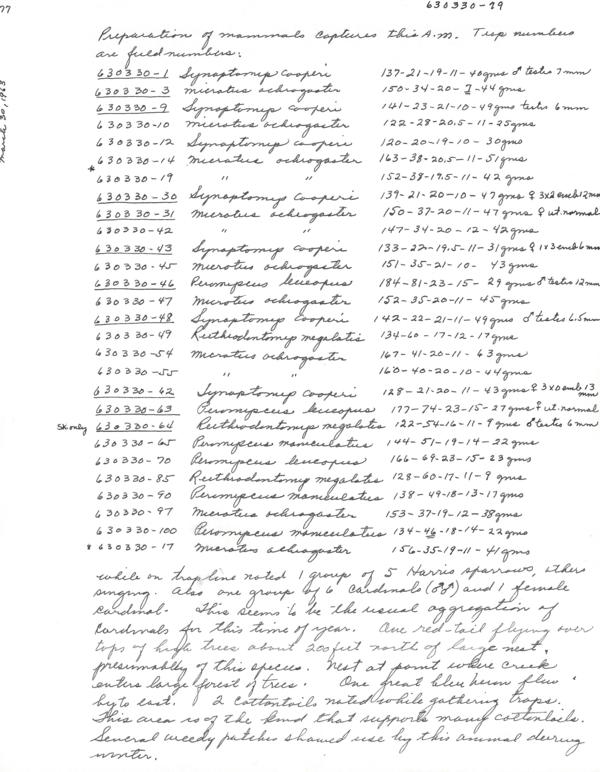 77
630330-79
March 30, 1963
Preparation of mammals captures this A.M. Trap numbers
are field numbers:
630330-1 Synaptomip cooperi 137-21-19-11-40gms ♂ testis 7mm
630330-3 Microtus ochrogaster 150-34-20-7-44gms
630330-9 Synaptomip cooperi 141-23-21-10-49gms testis 6mm
630330-10 Microtus ochrogaster 122-28-20.5-11-25gms
630330-12 Synaptomip cooperi 120-20-19-10-30gms
* 630330-14 Microtus ochrogaster 163-38-20.5-11-51gms
630330-19 " " 152-38-19.5-11-42gms
630330-30 Synaptomip cooperi 139-21-20-10-47gms ♀ 3x2 emb 12mm
630330-31 Microtus ochrogaster 150-37-20-11-47gms ♀ ut. normal
630330-42 " " 147-34-20-12-42gms
630330-43 Synaptomip cooperi 133-22-19.5-11-31gms ♀ 1x3 emb 6mm
630330-45 Microtus ochrogaster 151-35-21-10-43gms
630330-46 Peromipcus leucopus 184-81-23-15-29gms ♂ testis 12mm
630330-47 Microtus ochrogaster 152-35-20-11-45gms
630330-48 Synaptomip cooperi 142-22-21-11-49gms ♂ testes 6.5mm
630330-49 Reithrodontomip megalotis 134-60-17-12-17gms
630330-54 Microtus ochrogaster 167-41-20-11-63gms
630330-55 " " 160-40-20-10-44gms
630330-62 Synaptomip cooperi 128-21-20-11-43gms ♀ 3x0 emb 13mm
630330-63 Peromipcus leucopus 177-74-23-15-27gms ♀ ut. normal
SK only 630330-64 Reithrodontomip megalotis 122-54-16-11-9gms ♂ testis 6mm
630330-65 Peromipcus maniculatus 144-51-19-14-22gms
630330-70 Peromipcus leucopus 166-69-23-15-23gms
630330-85 Reithrodontomip megalotis 128-60-17-11-9gms
630330-90 Peromipcus maniculatus 138-49-18-13-17gms
630330-97 Microtus ochrogaster 153-37-19-12-38gms
630330-100 Peromipcus maniculatus 134-46-18-14-22gms
* 630330-17 Microtus ochrogaster 156-35-19-11-41gms
while on trapline noted 1 group of 5 Harris sparrows, others
singing. Also one group of 6 cardinals (♂♂) and 1 female
cardinal. This seems to be the usual aggregation of
Cardinals for this time of year. One red-tail flying over
tops of high trees about 200 feet north of large nest,
presumably of this species. Nest at point where creek
enters large forest of trees. One great blue heron flew
by to east. 2 cottontails noted while gathering traps.
This area is of the kind that supports many cottontails.
Several weedy patches showed use by this animal during
winter.